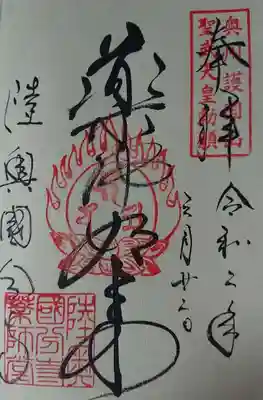 聖武天皇勅願
奉拝
令和二年
三月廿二日
薬師如来
陸奥國分寺
陸奥
國分寺
薬師堂